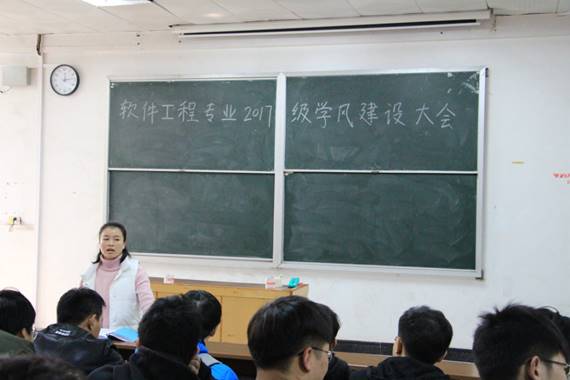 软件工程专业2017级学风建设大会